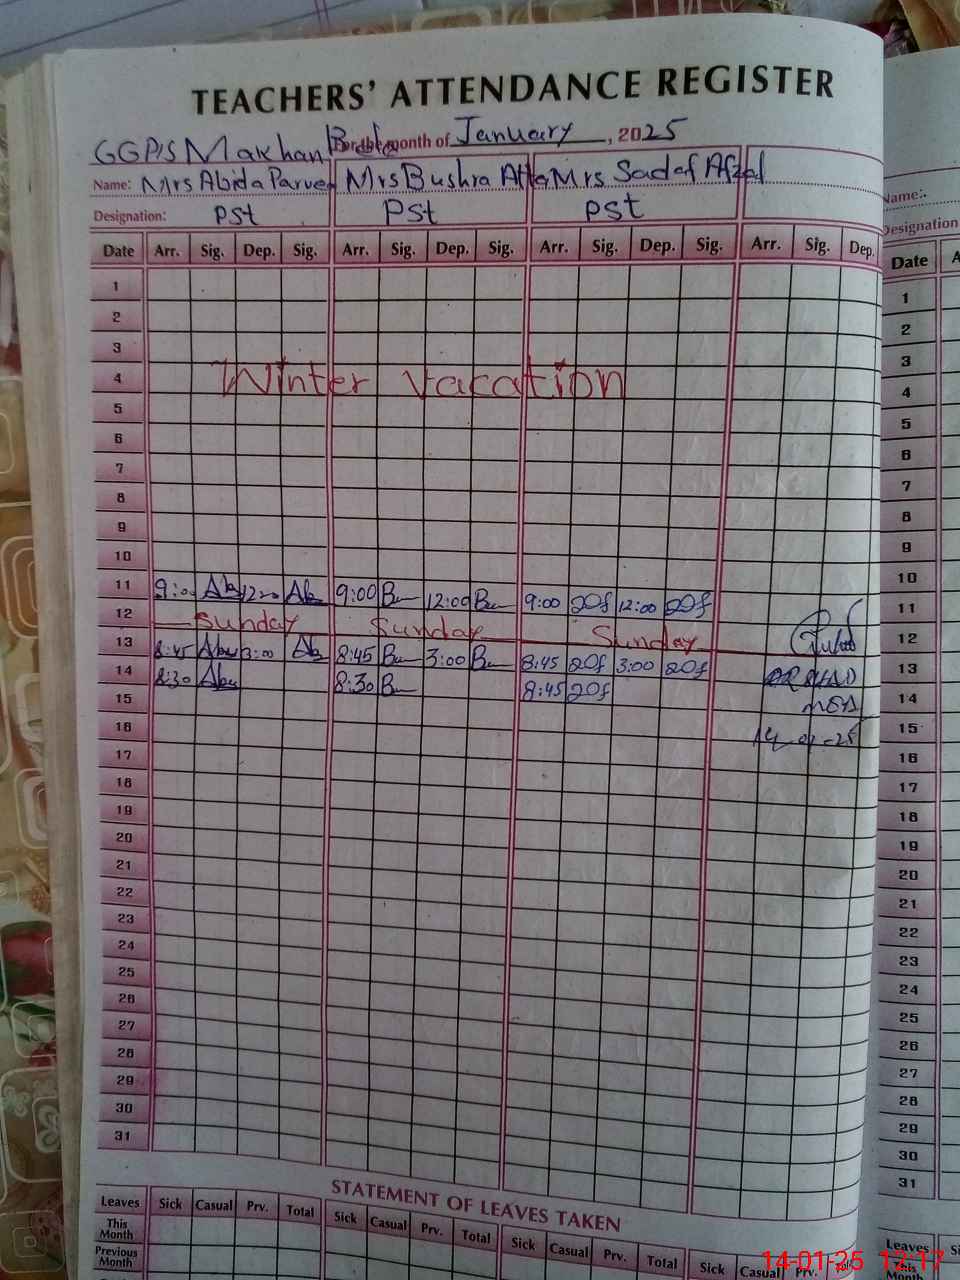 TEACHERS' ATTENDANCE REGISTER
GGP/S Makhan For the month of January, 2025
Name: Mrs Abida Parveen Mrs Bushra Atta Mrs Sadaf Afzal
Designation: PSt PSt PSt
Date Arr. Sig. Dep. Sig. Arr. Sig. Dep. Sig. Arr. Sig. Dep. Sig. Arr. Sig. Dep.
1
2
3
4 Winter vacation
5
6
7
8
9
10
11 9:00 12:00 9:00 12:00 9:00 12:00
12 Sunday Sunday Sunday
13 8:45 3:00 8:45 3:00 8:45 3:00
14 8:30 8:30 8:45
15
14-01-25
16
17
18
19
20
21
22
23
24
25
26
27
28
29
30
31
STATEMENT OF LEAVES TAKEN
Leaves Sick Casual Prv. Total Sick Casual Prv. Total Sick Casual Prv. Total Sick Casual Prv.
This Month
Previous Month
Name:
Designation
Date
1
2
3
4
5
6
7
8
9
10
11
12
13
14
15
16
17
18
19
20
21
22
23
24
25
26
27
28
29
30
31
Leaves
This
Month
14-01-25 12:17